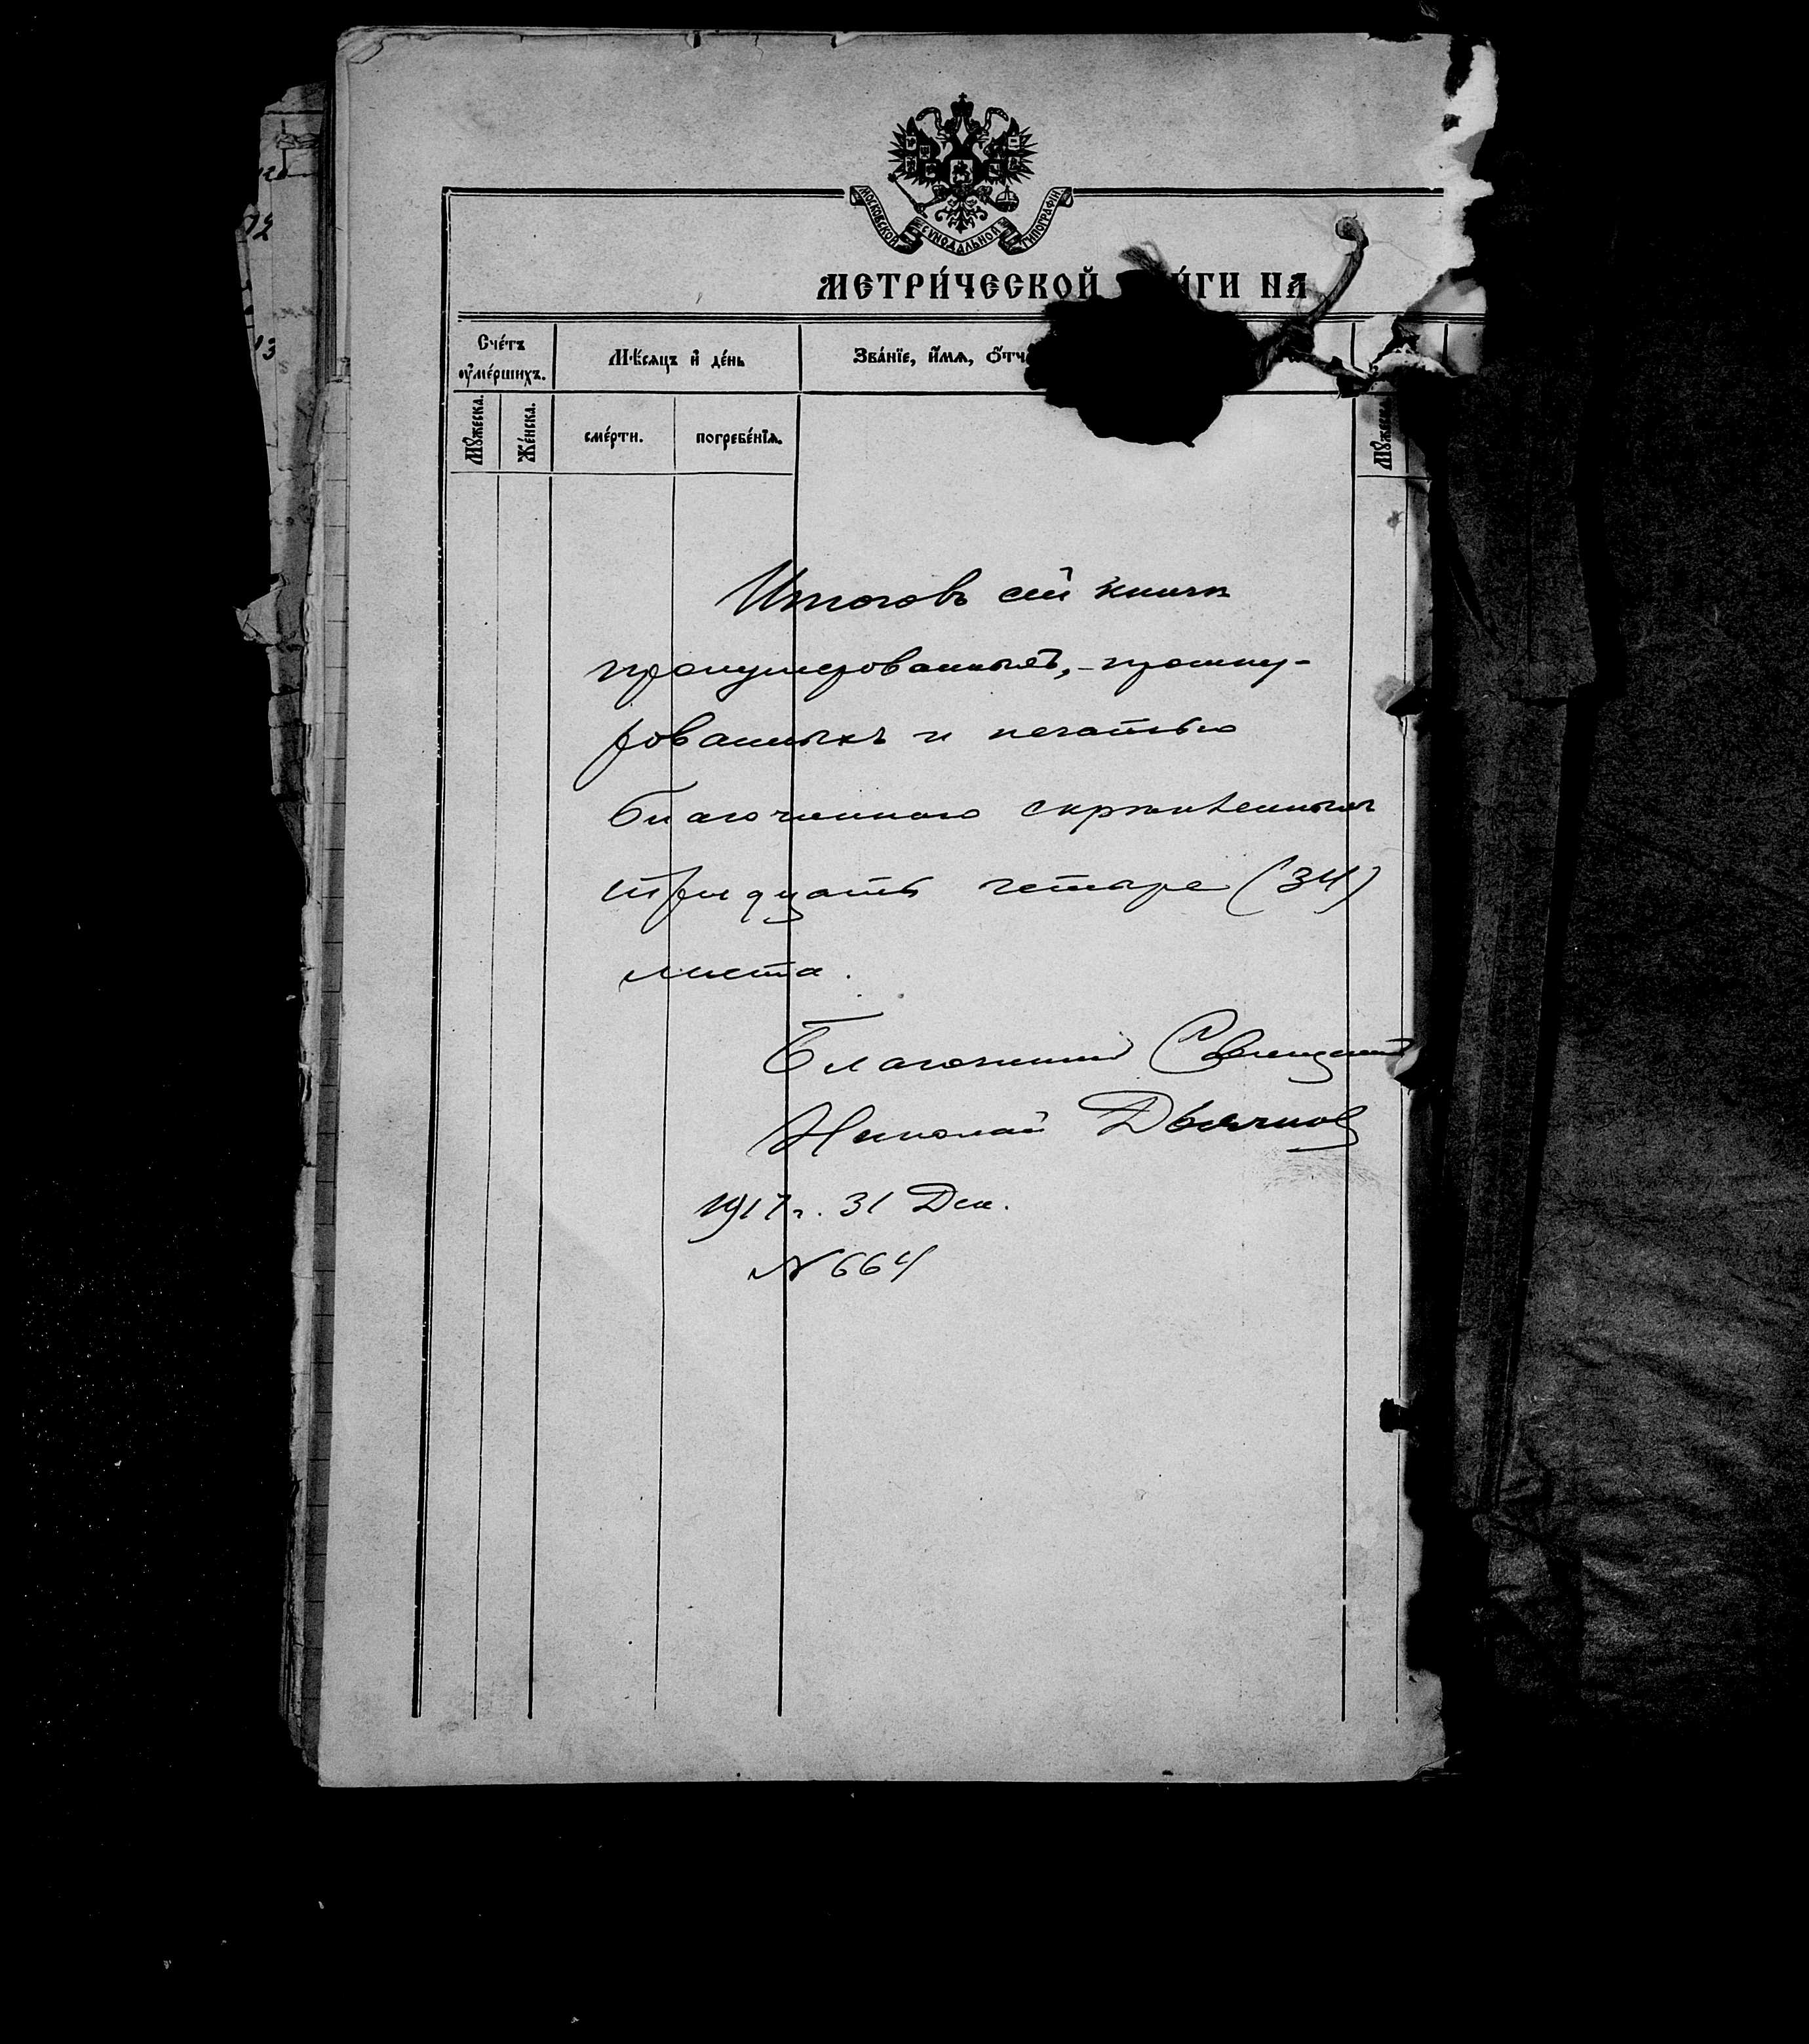 МОСКОВСКОЙ СѴНОДАЛЬНОЙ ТИПОГРАФІИ
МЕТРИ́ЧЕСКОЙ И́ГИ НА
Сче́тъ ᲂу҆ме́ршихъ.
Мѣ́сяцъ и҆ де́нь
Зва́нїе, и҆́мѧ, ѻ҆́тч
Мꙋ́жеска.
Же́нска.
сме́рти.
погребе́нїѧ.
Мꙋ́жеска.
Итоговъ сей книги
пронумерованныхъ, - прошну-
рованныхъ и печатью
благочиннаго скрѣпленныхъ
тридцать четыре (34)
листа.
Благочинный Священникъ
Николай Дьячков
1917 г. 31 Дек.
№ 664